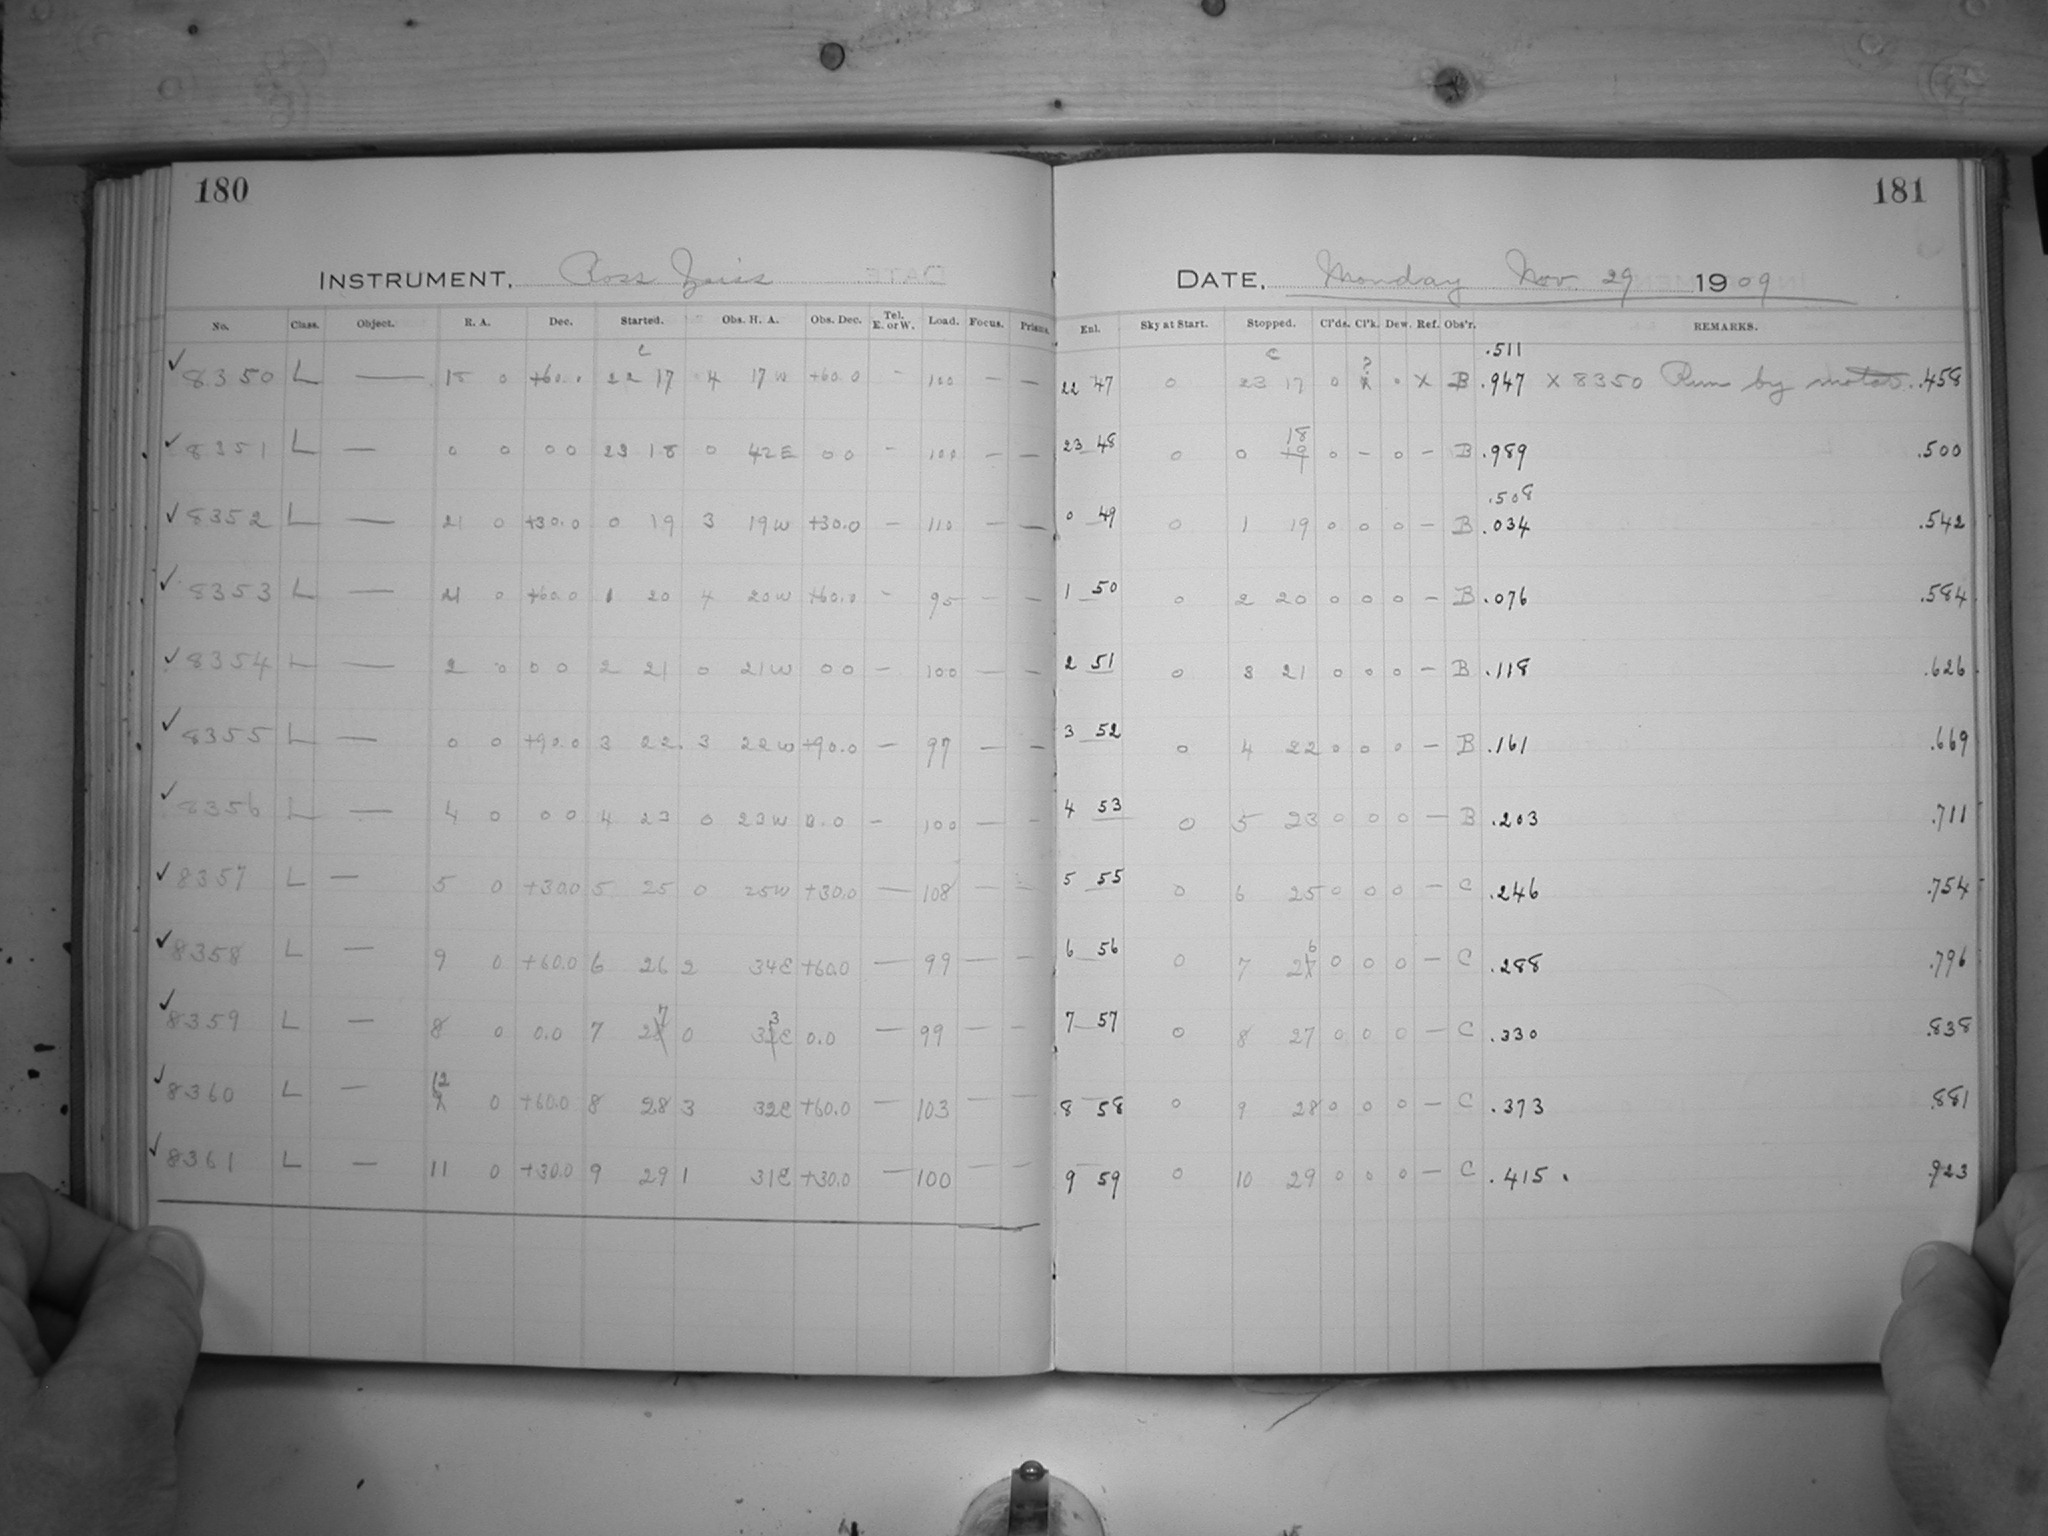 180
181
INSTRUMENT, Ross Zeiss
DATE, Monday Nov. 29 1909
No. Class. Object. R. A. Dec. Started. Obs. H. A. Obs. Dec. Tel. E. or W. Load. Focus. Prisms. Enl. Sky at Start. Stopped. Cl'ds. Cl'k. Dew. Ref. Obs'r. REMARKS.
c c ? .511
✓ 8350 L — 18 0 +60.0 22 17 4 17 W +60.0 - 100 — — 22 47 0 23 17 0 x 0 X B .947 X 8350 Run by motor. .458
18
✓ 8351 L — 0 0 0 0 23 18 0 42 E 0 0 - 100 — — 23 48 0 0 19 0 - 0 - B .989 .500
.508
✓ 8352 L — 21 0 +30.0 0 19 3 19 W +30.0 - 110 — — 0 49 0 1 19 0 0 0 - B .034 .542
✓ 8353 L — 21 0 +60.0 1 20 4 20 W +60.0 - 95 — — 1 50 0 2 20 0 0 0 - B .076 .584
✓ 8354 L — 2 0 0 0 2 21 0 21 W 0 0 - 100 — — 2 51 0 3 21 0 0 0 - B .118 .626
✓ 8355 L — 0 0 +90.0 3 22 3 22 W +90.0 - 97 — — 3 52 0 4 22 0 0 0 - B .161 .669
✓ 8356 L — 4 0 0 0 4 23 0 23 W 0.0 - 100 — - 4 53 0 5 23 0 0 0 - B .203 .711
✓ 8357 L — 5 0 +30.0 5 25 0 25 W +30.0 — 108 — — 5 55 0 6 25 0 0 0 - C .246 .754
6
✓ 8358 L — 9 0 +60.0 6 26 2 34 E +60.0 — 99 — — 6 56 0 7 27 0 0 0 - C .288 .796
7 3
✓ 8359 L — 8 0 0.0 7 28 0 32 E 0.0 — 99 — — 7 57 0 8 27 0 0 0 - C .330 .838
12
✓ 8360 L — 0 +60.0 8 28 3 32 E +60.0 — 103 — — 8 58 0 9 28 0 0 0 - C .373 .881
✓ 8361 L — 11 0 +30.0 9 29 1 31 E +30.0 — 100 — — 9 59 0 10 29 0 0 0 - C .415 . .923